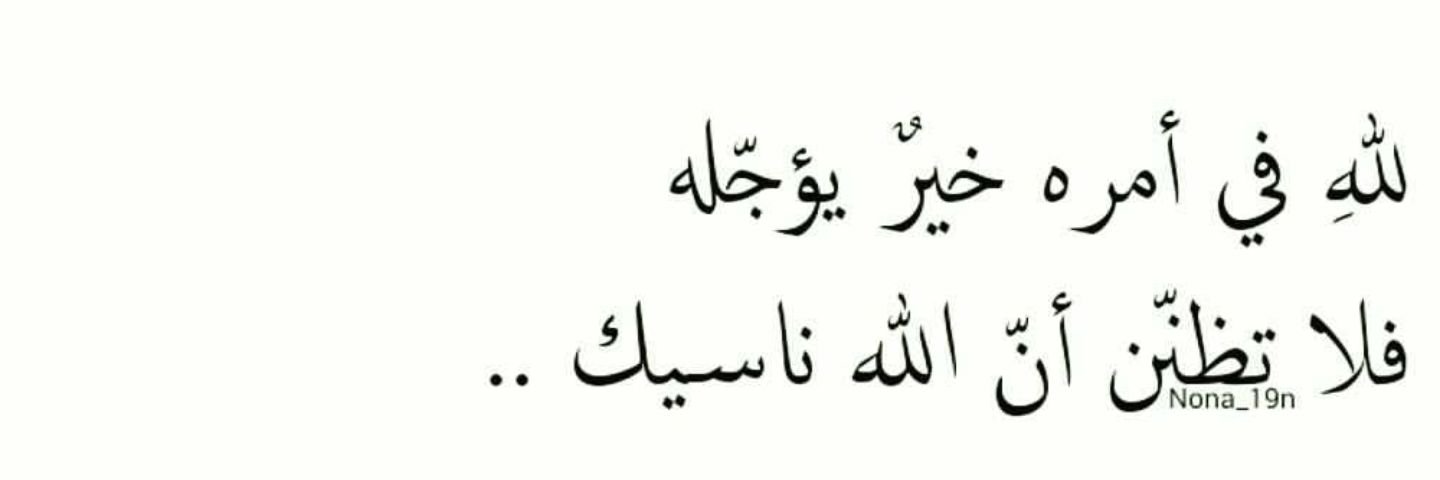 للهِ في أمره خيرٌ يؤجّله
فلا تظنّن أنّ الله ناسيك ..
Nona_19n